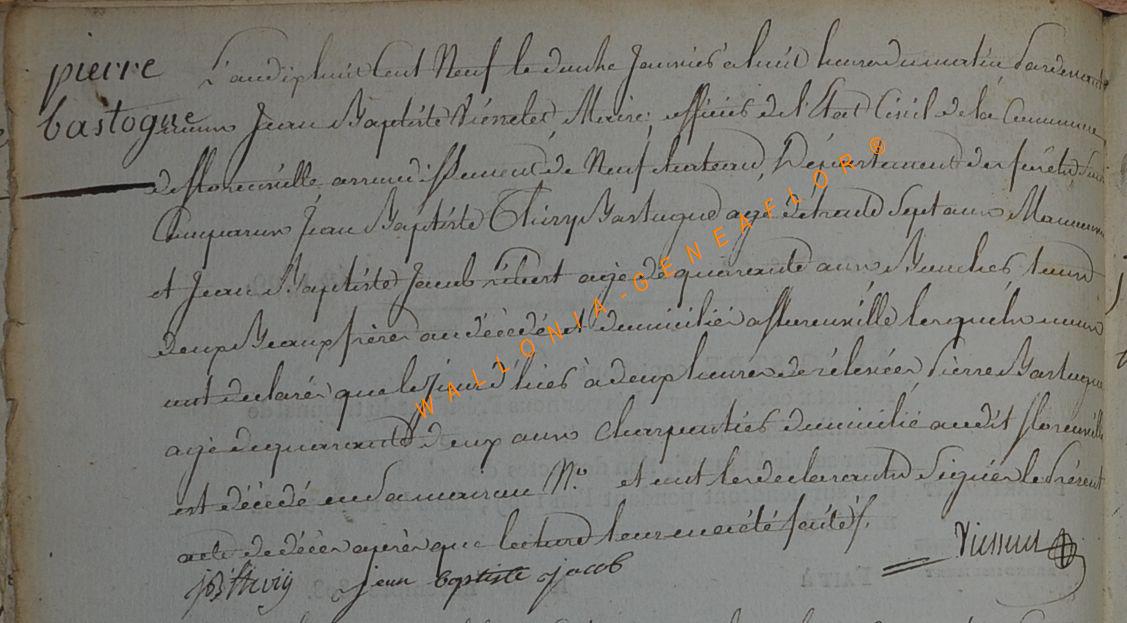 pierre
bastogne
L'an dix huit Cent Neuf le douze Janvier à huit heures du matin pardevant
nous Jean Baptiste Maire officier de l'Etat Civil de la Commune
de florenville arrondissement de Neufchateau, Département des forêts, sont
Comparus Jean Baptiste Thiry Bastogne agé de trente Sept ans
et Jean Baptiste Jacob agé de quarante ans tous
deux Beaux frères au décédé et domiciliés a florenville lesquels nous
ont declarés que le jour d'hier à deux heures de rélevée, Pierre Bastogne
agé de quarante deux ans Charpentier domicilié audit florenville
est décédé en Sa maison No. et ont les declarants Signés le présent
acte de décès après que lecture leur en a été faite.
WALLONIA-GENEAFLOR®
jean baptiste jacob